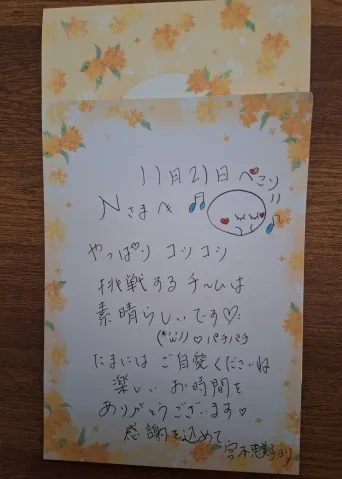 11月21日 ぺこり
Nさまへ
やっぱり コツコツ
挑戦する チームは
素晴らしいです♡
(*'ω'))♡パチパチ
たまには ご自愛くださいね
楽しい お時間を
ありがとうございます♡
感謝を込めて
宮本恵子ヨリ